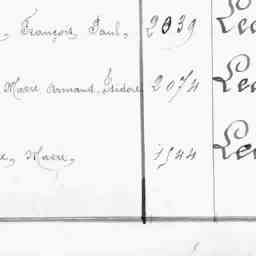 , François Paul, 2039 Le
Marie Armand Isidore 2074 Le
e, Marie, 1544 Le